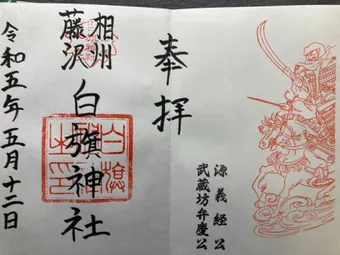 奉拝
相州
藤沢
白旗神社
令和五年五月十二日
源義経公
武蔵坊弁慶公